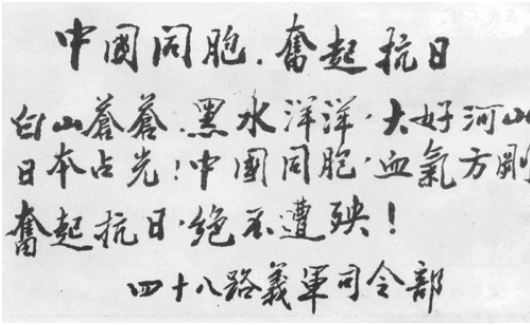 中國同胞．奮起抗日
白山蒼蒼．黑水洋洋．大好河山
日本占光！中國同胞．血氣方剛
奮起抗日．絕不遭殃！
四十八路義軍司令部